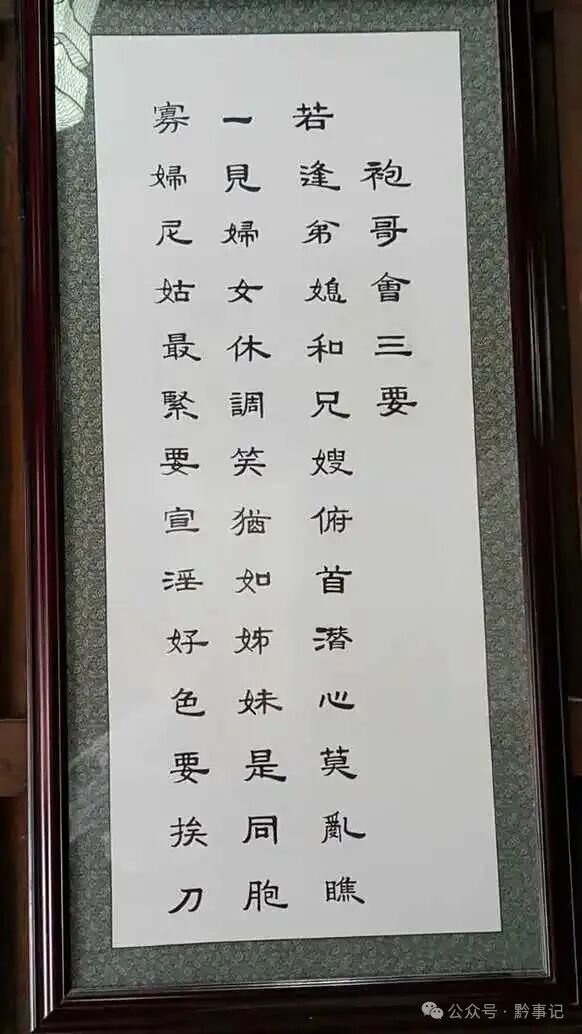 袍哥會三要
若逢弟媳和兄嫂俯首潛心莫亂瞧
一見婦女休調笑猶如姊妹是同胞
寡婦尼姑最緊要宣淫好色要挨刀
公众号·黔事记